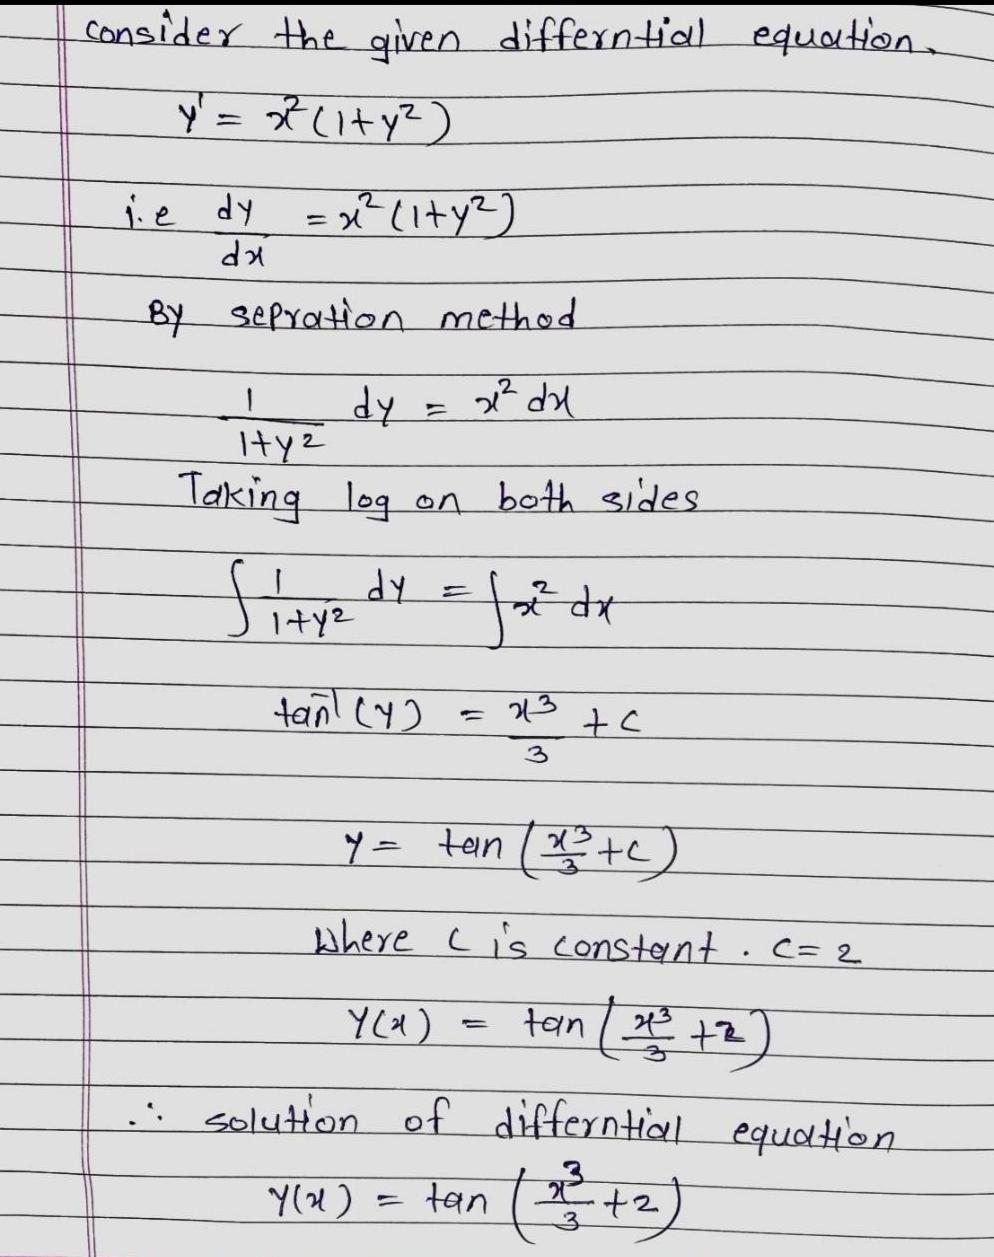 consider the given differntial equation.
y' = x²(1+y²)
i.e dy/dx = x²(1+y²)
By sepration method
1/(1+y²) dy = x² dx
Taking log on both sides
∫ 1/(1+y²) dy = ∫ x² dx
tan⁻¹(y) = x³/3 + c
y = tan (x³/3 + c)
Where c is constant . c = 2
y(x) = tan (x³/3 + 2)
∴ solution of differntial equation
y(x) = tan (x³/3 + 2)